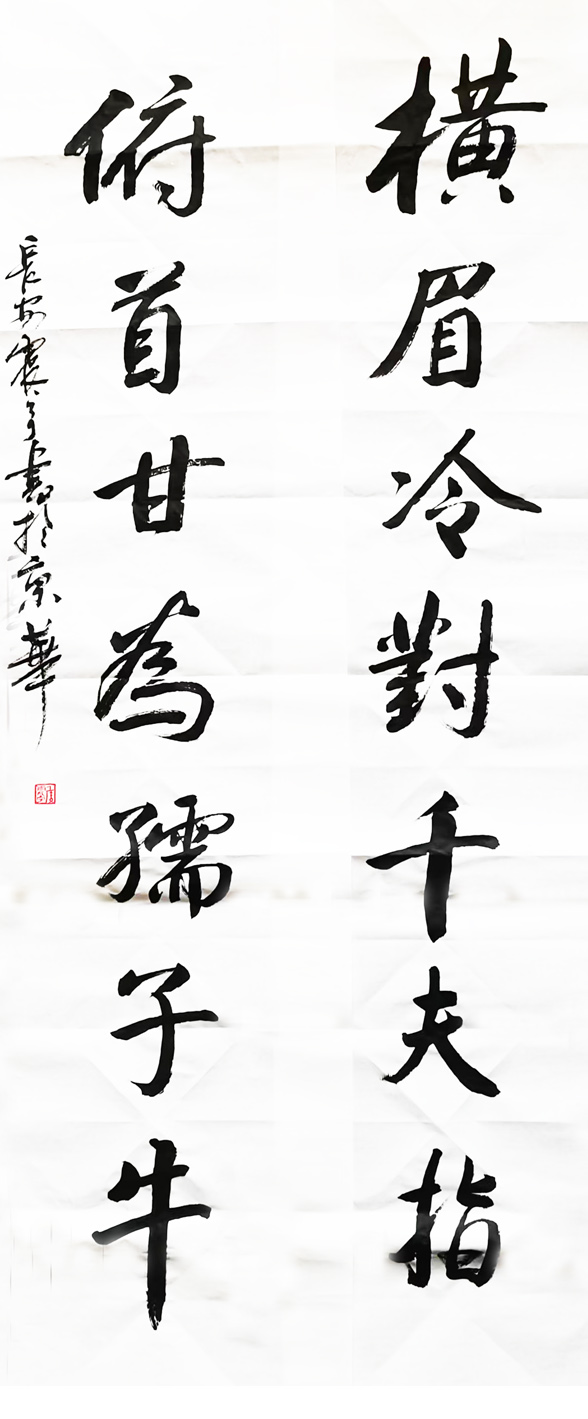 橫眉冷對千夫指
俯首甘為孺子牛
長安寒子書於京華